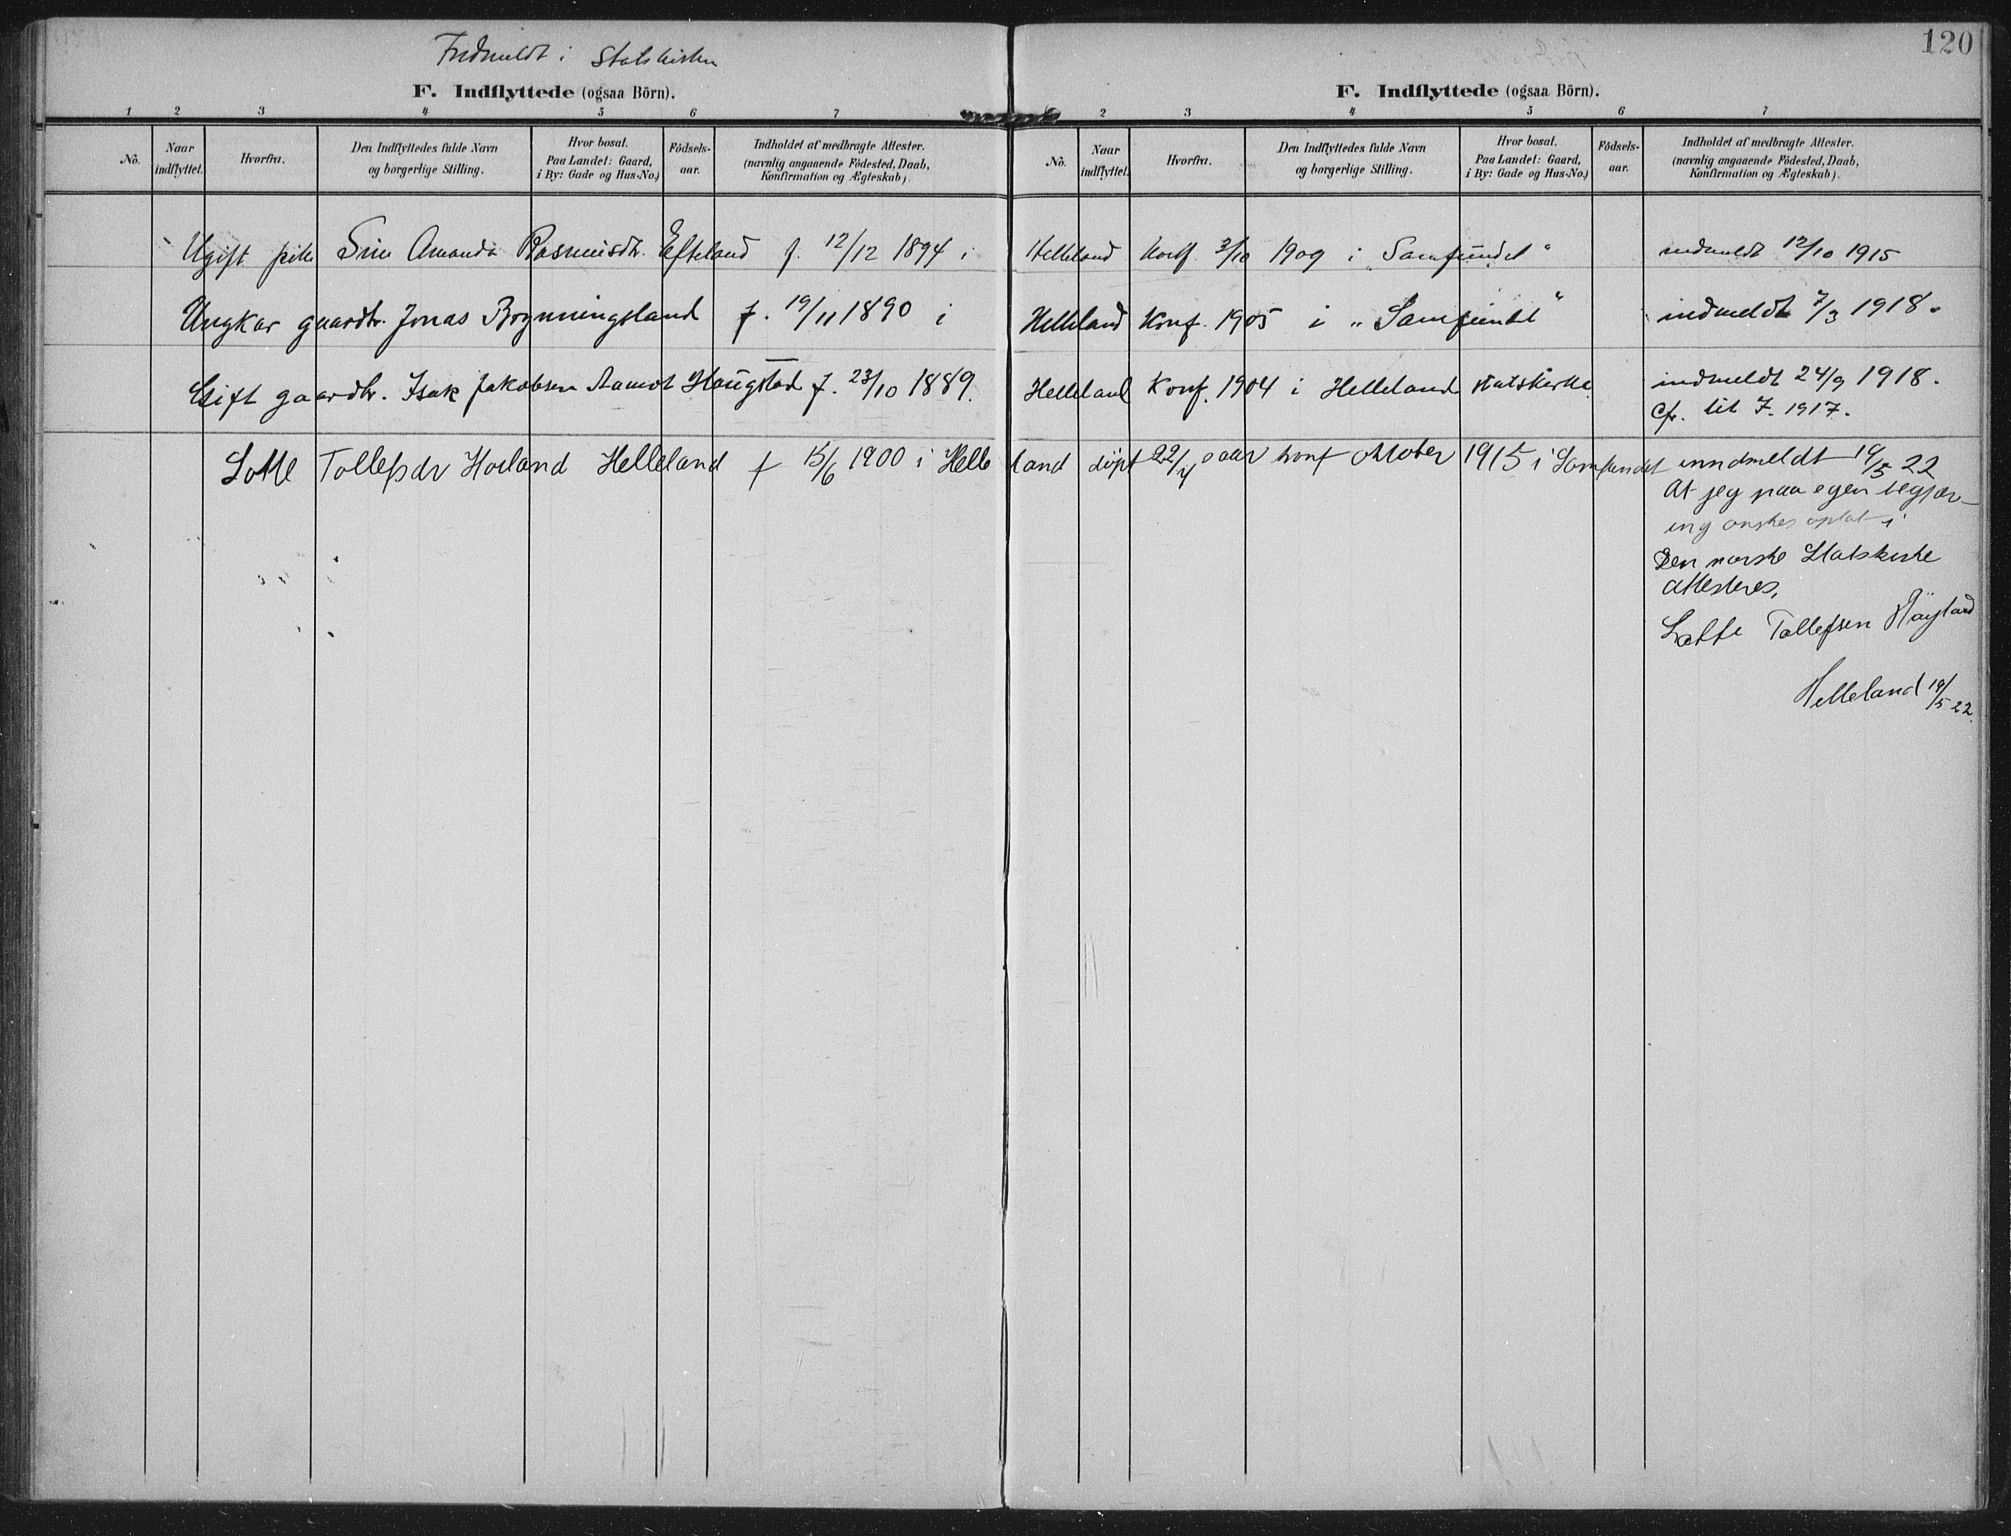 120
Indmeldt i Statskirken
F. Indflyttede (ogsaa Börn).
1 2 3 4 5 6 7
No.
Naar indflyttet.
Hvorfra.
Den Indflyttedes fulde Navn og borgerlige Stilling.
Hvor bosat. Paa Landet: Gaard, i By: Gade og Hus-No.)
Födselsaar.
Indholdet af medbragte Attester. (navnlig angaaende Födested, Daab, Konfirmation og Ægteskab).
F. Indflyttede (ogsaa Börn).
2 3 4 5 6 7
No.
Naar indflyttet.
Hvorfra.
Den Indflyttedes fulde Navn og borgerlige Stilling.
Hvor bosat. Paa Landet: Gaard, i By: Gade og Hus-No.)
Födselsaar.
Indholdet af medbragte Attester. (navnlig angaaende Födested, Daab, Konfirmation og Ægteskab).
Ugift pike Sine Amanda Rasmusdtr. Efteland f. 12/12 1894 i Helleland Konf. 3/10 1909 i "Samfundet" indmeldt 12/10 1915
Ungkar gaardbr. Jonas Brynningsland f. 19/11 1890 i Helleland Konf. 1905 i "Samfundet" indmeldt 7/3 1918.
Gift gaardbr. Isak Jakobsen Aamot Haugstad f. 23/10 1889. Helleland Konf. 1904 i Helleland statskirke indmeldt 24/9 1918.
Cfr. lit J. 1917.
Lotte Tollefsdr Hovland Helleland f 15/6 1900 i Helleland döpt 22/7 s aar konf oktober 1915 i Samfundet inndmeldt 19/5 22
At jeg paa egen begjær-
ing önskes optat i
Den norske Statskirke
attesteres,
Lotte Tollefsen Høyland
Helleland 19/5 22.